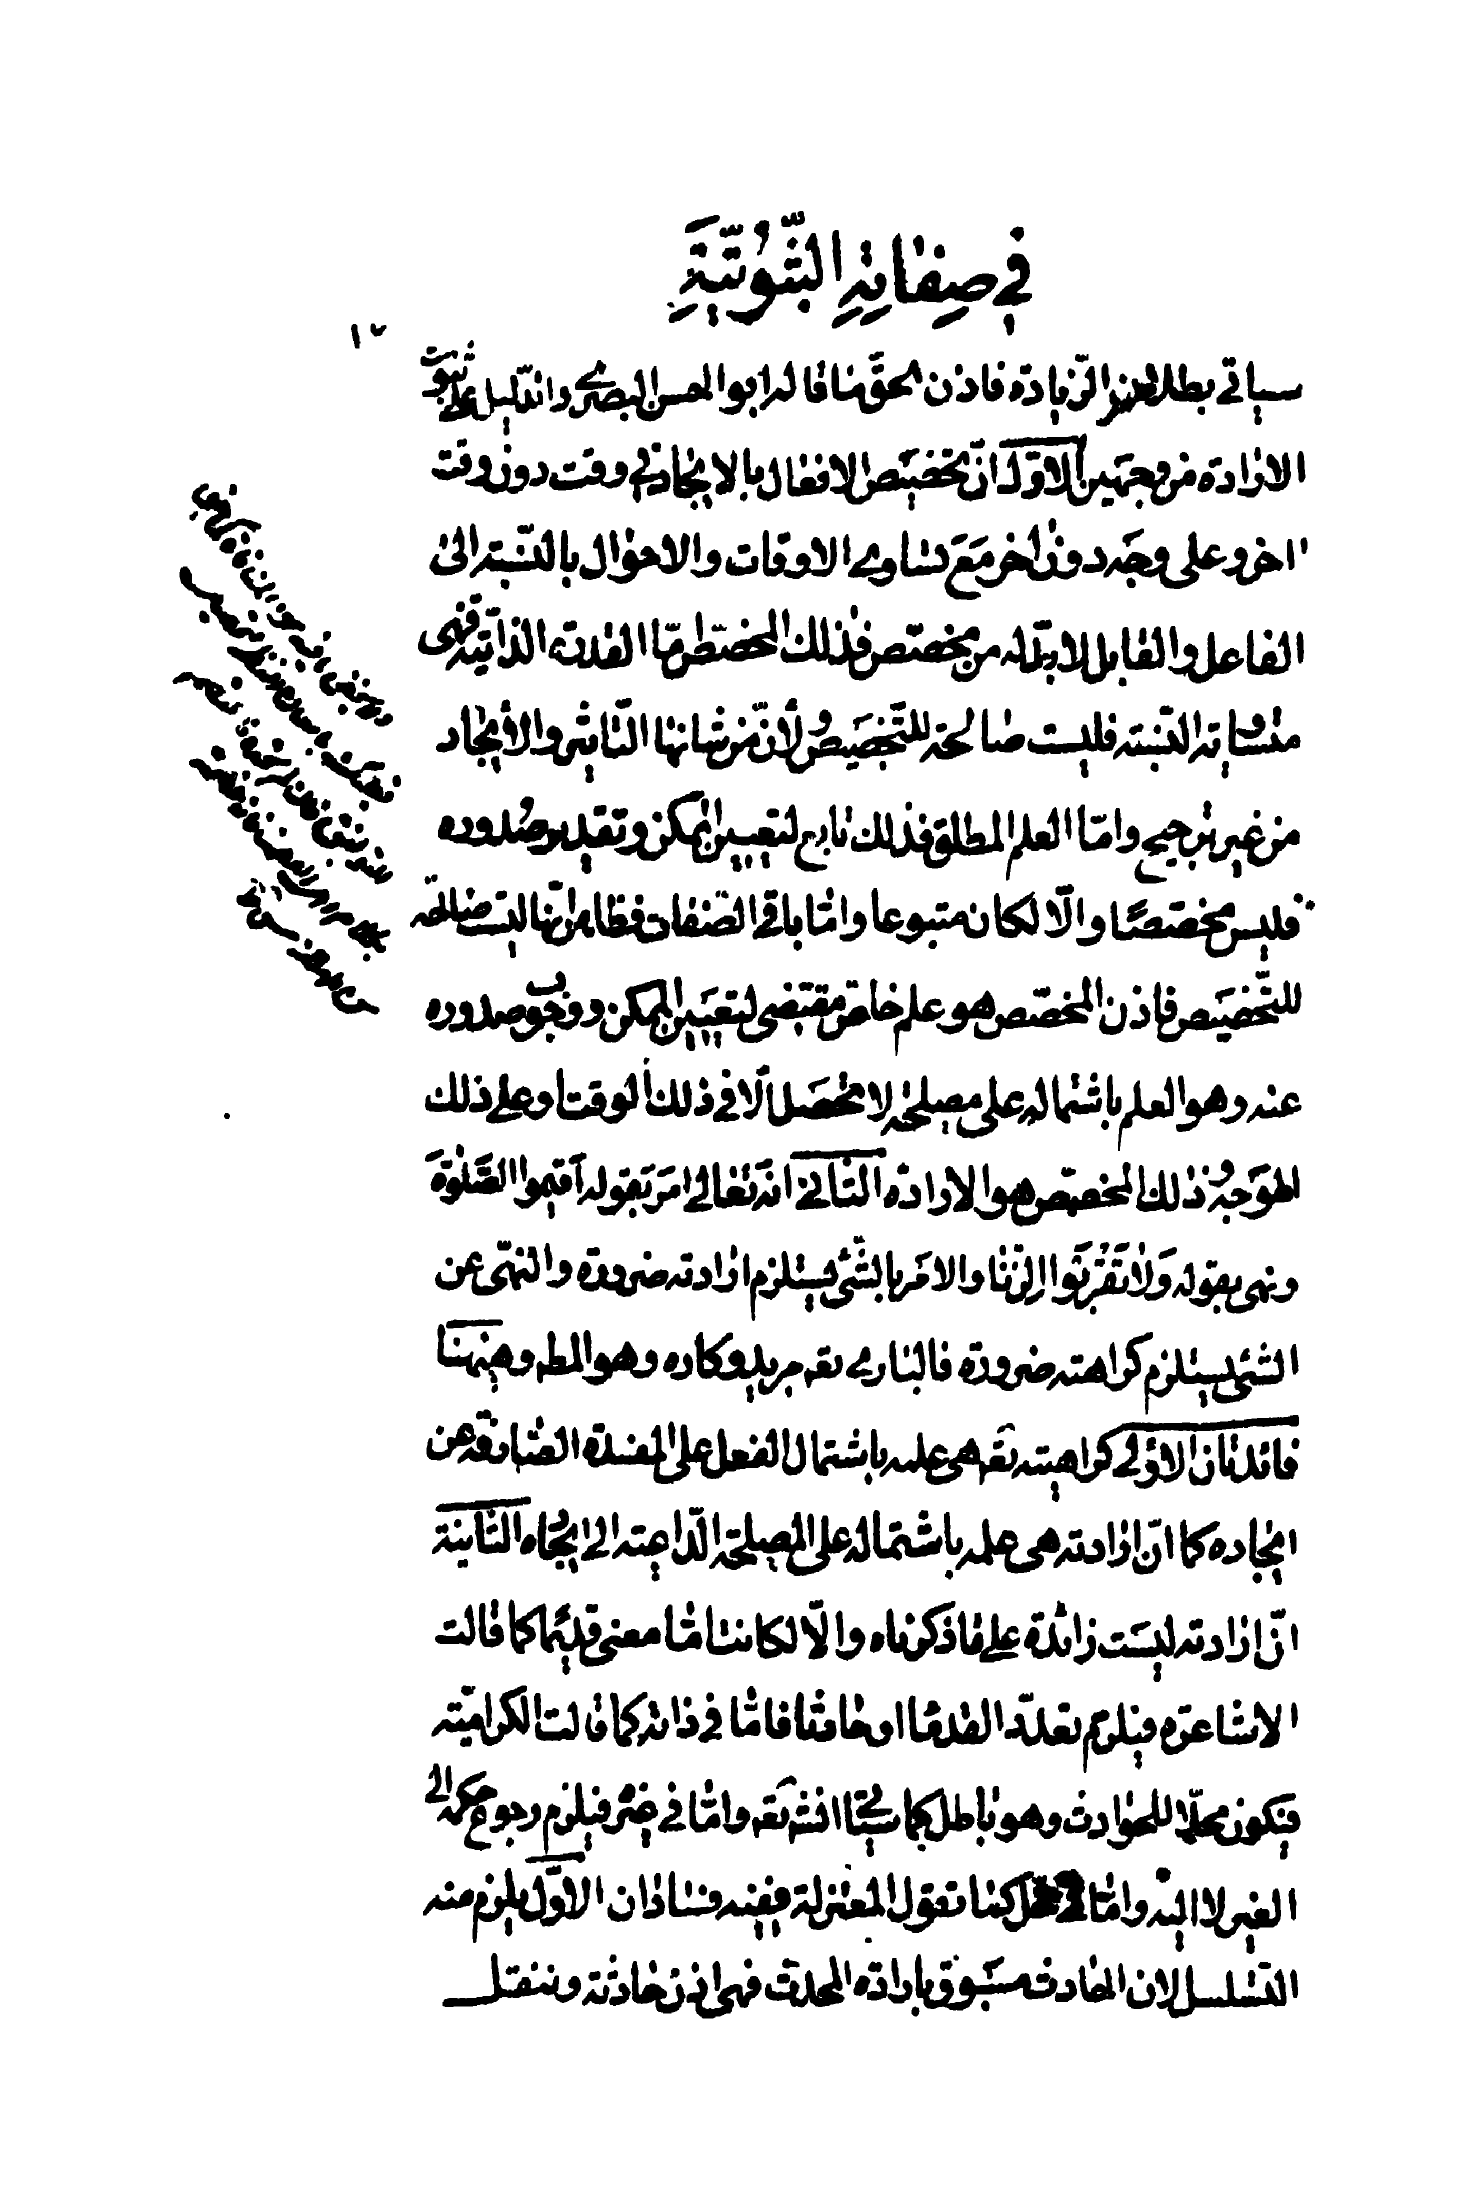 في صِفاتِهِ الثُّبُوتِيَّةِ
١٧
سيأتي بطلان الزيادة فاذن الحق ما قاله ابو الحسن البصري والدليل على ثبوت
الارادة من وجهين الاول ان تخصيص الافعال بالايجاد في وقت دون وقت
اخر وعلى وجه دون اخر مع تساوي الاوقات والاحوال بالنسبة الى
الفاعل والقابل لابد له من مخصص فذلك المخصص امّا القدرة الذاتية فهي
متساوية النسبة فليست صالحة للتخصيص ولأنّ من شانها التاثير والايجاد
من غير ترجيح وامّا العلم المطلق فذلك تابع لتعيين الممكن وتقدير صدوره
فليس مخصصًا والّا لكان متبوعا وامّا باقي الصفات فظاهر انها ليست صالحة
للتخصيص فاذن المخصّص هو علم خاص مقتضى لتعيين الممكن ووجوب صدوره
عنه وهو العلم باشتماله على مصلحة لا تحصل الّا في ذلك الوقت او على ذلك
الوَجه وذلك المخصّص هو الارادة الثاني انه تعالى امر بقوله اقيموا الصَّلوٰةَ
ونهى بقوله وَلا تَقْرَبُوا الزِّنا والامر بالشئ يستلزم ارادته ضرورة والنهى عن
الشئ يستلزم كراهته ضرورة فالبارى تعه مريد وكاره وهو المط وهيهنا
فائدتان الاولى كراهيته تعه هي علمه باشتمال الفعل على المفسدة الصارفة عن
ايجاده كما انّ ارادته هي علمه باشتماله على المصلحة الداعية الى ايجاده الثانية
انّ ارادته ليست زائدة على ما ذكرناه والّا لكانت امّا معنى قديمًا كما قالت
الاشاعرة فيلزم تعدّد القدماء او حادثا فامّا في ذاته كما قالت الكرامية
فيكون محلّا للحوادث وهو باطل كما سيجئ انشه تعه وامّا في غيره فيلزم رجوع حكمه الى
الغير لا اليه وامّا لا في محل كما تقول المعتزلة ففيه فسادان الاوّل يلزم منه
التسلسل لان الحادث مسبوق بارادة المحدث فهى اذن حادثة وننقل